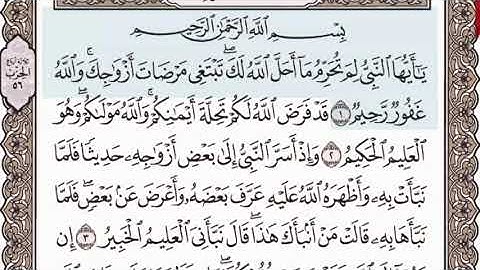 بِسْمِ اللَّهِ الرَّحْمَٰنِ الرَّحِيمِ
يَٰٓأَيُّهَا ٱلنَّبِيُّ لِمَ تُحَرِّمُ مَآ أَحَلَّ ٱللَّهُ لَكَۖ تَبۡتَغِي مَرۡضَاتَ أَزۡوَٰجِكَۚ وَٱللَّهُ
غَفُورٞ رَّحِيمٞ ١ قَدۡ فَرَضَ ٱللَّهُ لَكُمۡ تَحِلَّةَ أَيۡمَٰنِكُمۡۚ وَٱللَّهُ مَوۡلَىٰكُمۡۖ وَهُوَ
ٱلۡعَلِيمُ ٱلۡحَكِيمُ ٢ وَإِذۡ أَسَرَّ ٱلنَّبِيُّ إِلَىٰ بَعۡضِ أَزۡوَٰجِهِۦ حَدِيثٗا فَلَمَّا
نَبَّأَتۡ بِهِۦ وَأَظۡهَرَهُ ٱللَّهُ عَلَيۡهِ عَرَّفَ بَعۡضَهُۥ وَأَعۡرَضَ عَنۢ بَعۡضٖۖ فَلَمَّا
نَبَّأَهَا بِهِۦ قَالَتۡ مَنۡ أَنۢبَأَكَ هَٰذَاۖ قَالَ نَبَّأَنِيَ ٱلۡعَلِيمُ ٱلۡخَبِيرُ ٣ إِن
الحزب
٥٦